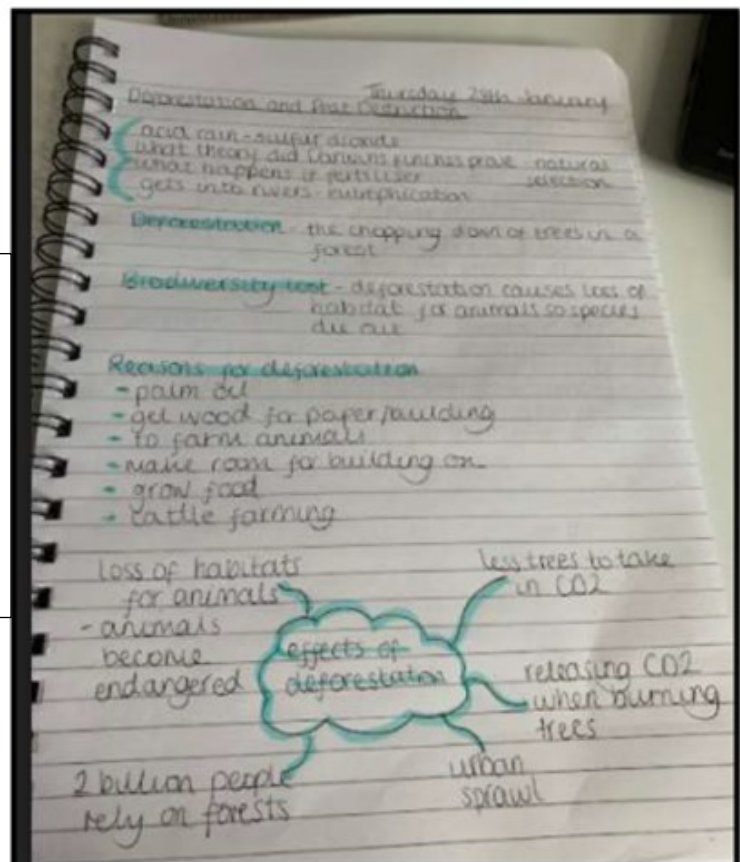 Thursday 28th January
Deforestation and Peat Destruction
acid rain - sulfur dioxide
what theory did Darwins finches prove - natural
selection
what happens if fertiliser
gets into rivers - eutrophication
Deforestation - the chopping down of trees in a
forest
Biodiversity lost - deforestation causes loss of
habitat for animals so species
die out
Reasons for deforestation
- palm oil
- get wood for paper/building
- to farm animals
- make room for building on
- grow food
- cattle farming
loss of habitats
for animals
- animals
become
endangered
less trees to take
in CO2
effects of
deforestation
releasing CO2
when burning
trees
2 billion people
rely on forests
urban
sprawl